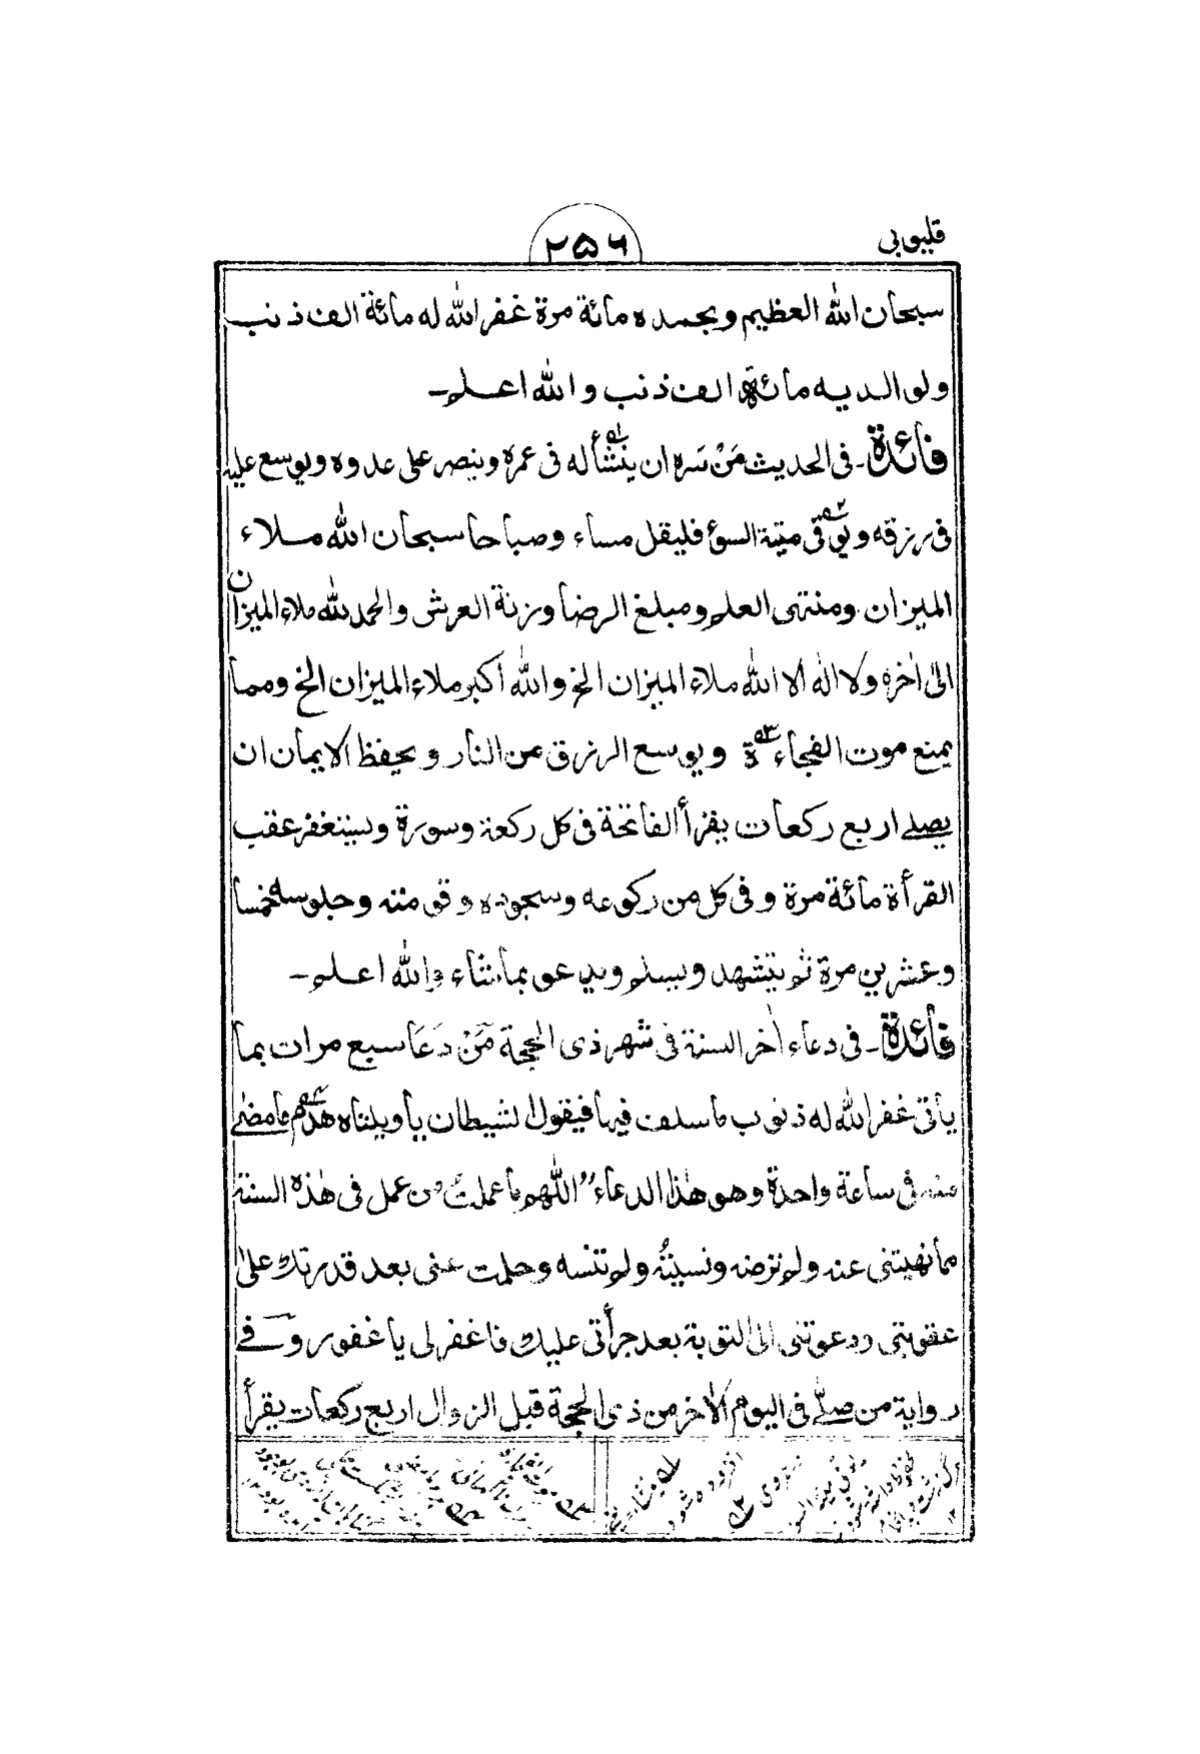 قليوبى
٢٥٦
سبحان الله العظيم وبحمده مائة مرة غفر الله له مائة الف ذنب
ولوالديه مائة الف ذنب والله اعلم ـ
فائدة ـ فى الحديث مَنْ سَره ان ينشأ له فى عمره وينصر على عدوه ويوسع عليه
فى رزقه ويوقى ميتة السوٴ فليقل مساء وصباحا سبحان الله ملاء
الميزان ومنتهى العلم ومبلغ الرضا وزنة العرش والحمد لله ملاء الميزان
الىٰ اٰخره ولا الٰه الا الله ملاء الميزان الخ والله أكبر ملاء الميزان الخ ومما
يمنع موت الفجاءة ويوسع الرزق من النار ويحفظ الايمان ان
يصلے اربع ركعات يقرأ الفاتحة فى كل ركعة وسورة ويستغفر عقب
القرأة مائة مرة وفى كل من ركوعه وسجوده وقومته وجلوسه خمسا
وعشرين مرة ثم يتشهد ويسلم ويدعو بماشاء والله اعلم ـ
فائدة ـ فى دعاء اٰخر السنة فى شهر ذى الحجة مَنْ دَعَا سبع مرات بما
يأتى غفر الله له ذنوب ماسلف فيها فيقول الشيطان يأويلتاه هدم مامضٰے
منه فى ساعة واحدة وهو هٰذا الدعاء "اللّٰهم ما عملت من عمل فى هٰذه السنة
مما نهيتنى عنه ولم ترضه ونسيتُه ولم تنسه وحلمت عنى بعد قدرتك علىٰ
عقوبتى ودعوتنى الى التوبة بعد جرأتى عليك فاغفر لى يا غفور وفے
رواية من صلّٰے فى اليوم الاٰخر من ذى الحجة قبل الزوال اربع ركعات يقرأ